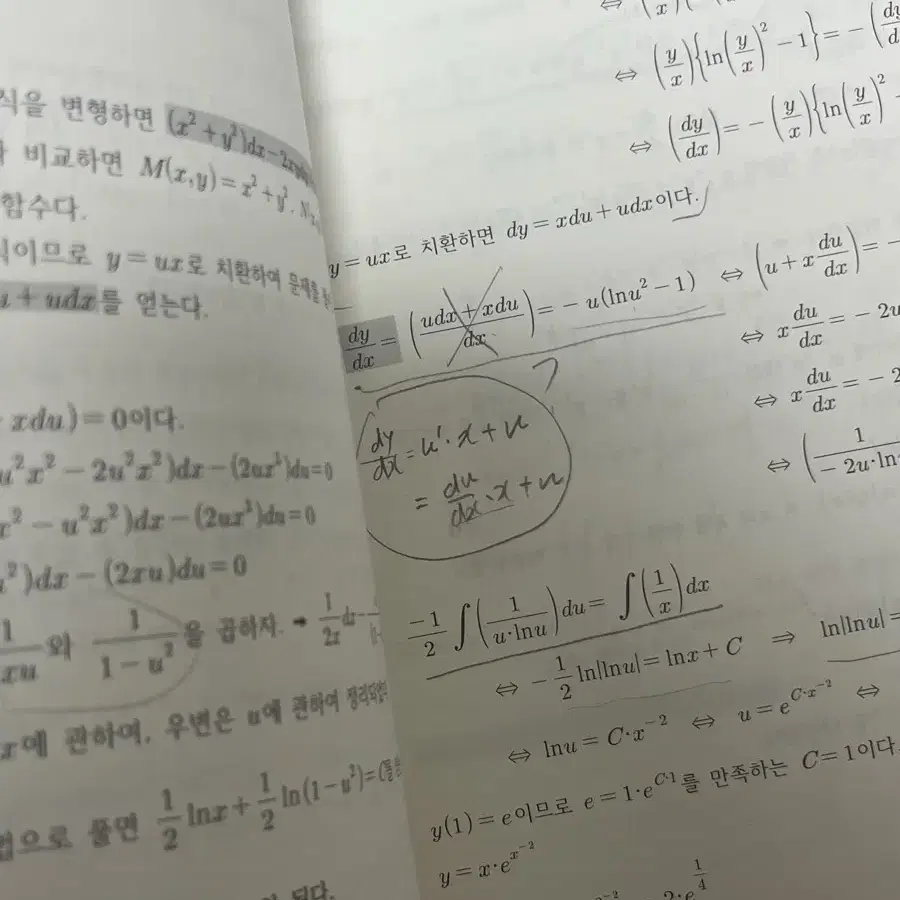 식을 변형하면 (x²+y²)dx-2xy
비교하면 M(x,y)=x²+y², N
함수다.
이므로 y=ux로 치환하여 문제를
u+udx를 얻는다.
xdu)=0이다.
u²x²-2u²x²)dx-(2ux³)du=0
x²-u²x²)dx-(2ux³)du=0
u²)dx-(2xu)du=0
1/xu 와 1/(1-u²)을 곱하자. → 1/2x dx-
x에 관하여, 우변은 u에 관하여 정리되었
법으로 풀면 1/2 lnx+1/2 ln(1-u²)=C
된다.
⇔ (y/x)(
⇔ (y/x){ln(y/x)²-1}=-(dy/d
⇔ (dy/dx)=-(y/x){ln(y/x)²-
y=ux로 치환하면 dy=xdu+udx이다.
dy/dx=((udx+xdu)/dx)=-u(lnu²-1) ⇔ (u+x du/dx)=-
⇔ x du/dx=-2u
⇔ x du/dx=-2
⇔ (1/(-2u·ln
dy/dx=u'·x+u
=du/dx·x+u
-1/2 ∫(1/(u·lnu))du= ∫(1/x)dx
⇔ -1/2 ln|lnu|=lnx+C ⇒ ln|lnu|=
⇔ lnu=C·x⁻² ⇔ u=e^(C·x⁻²) ⇔
y(1)=e이므로 e=1·e^(C·1)를 만족하는 C=1이다.
y=x·e^(x⁻²)
2·e^(1/4)